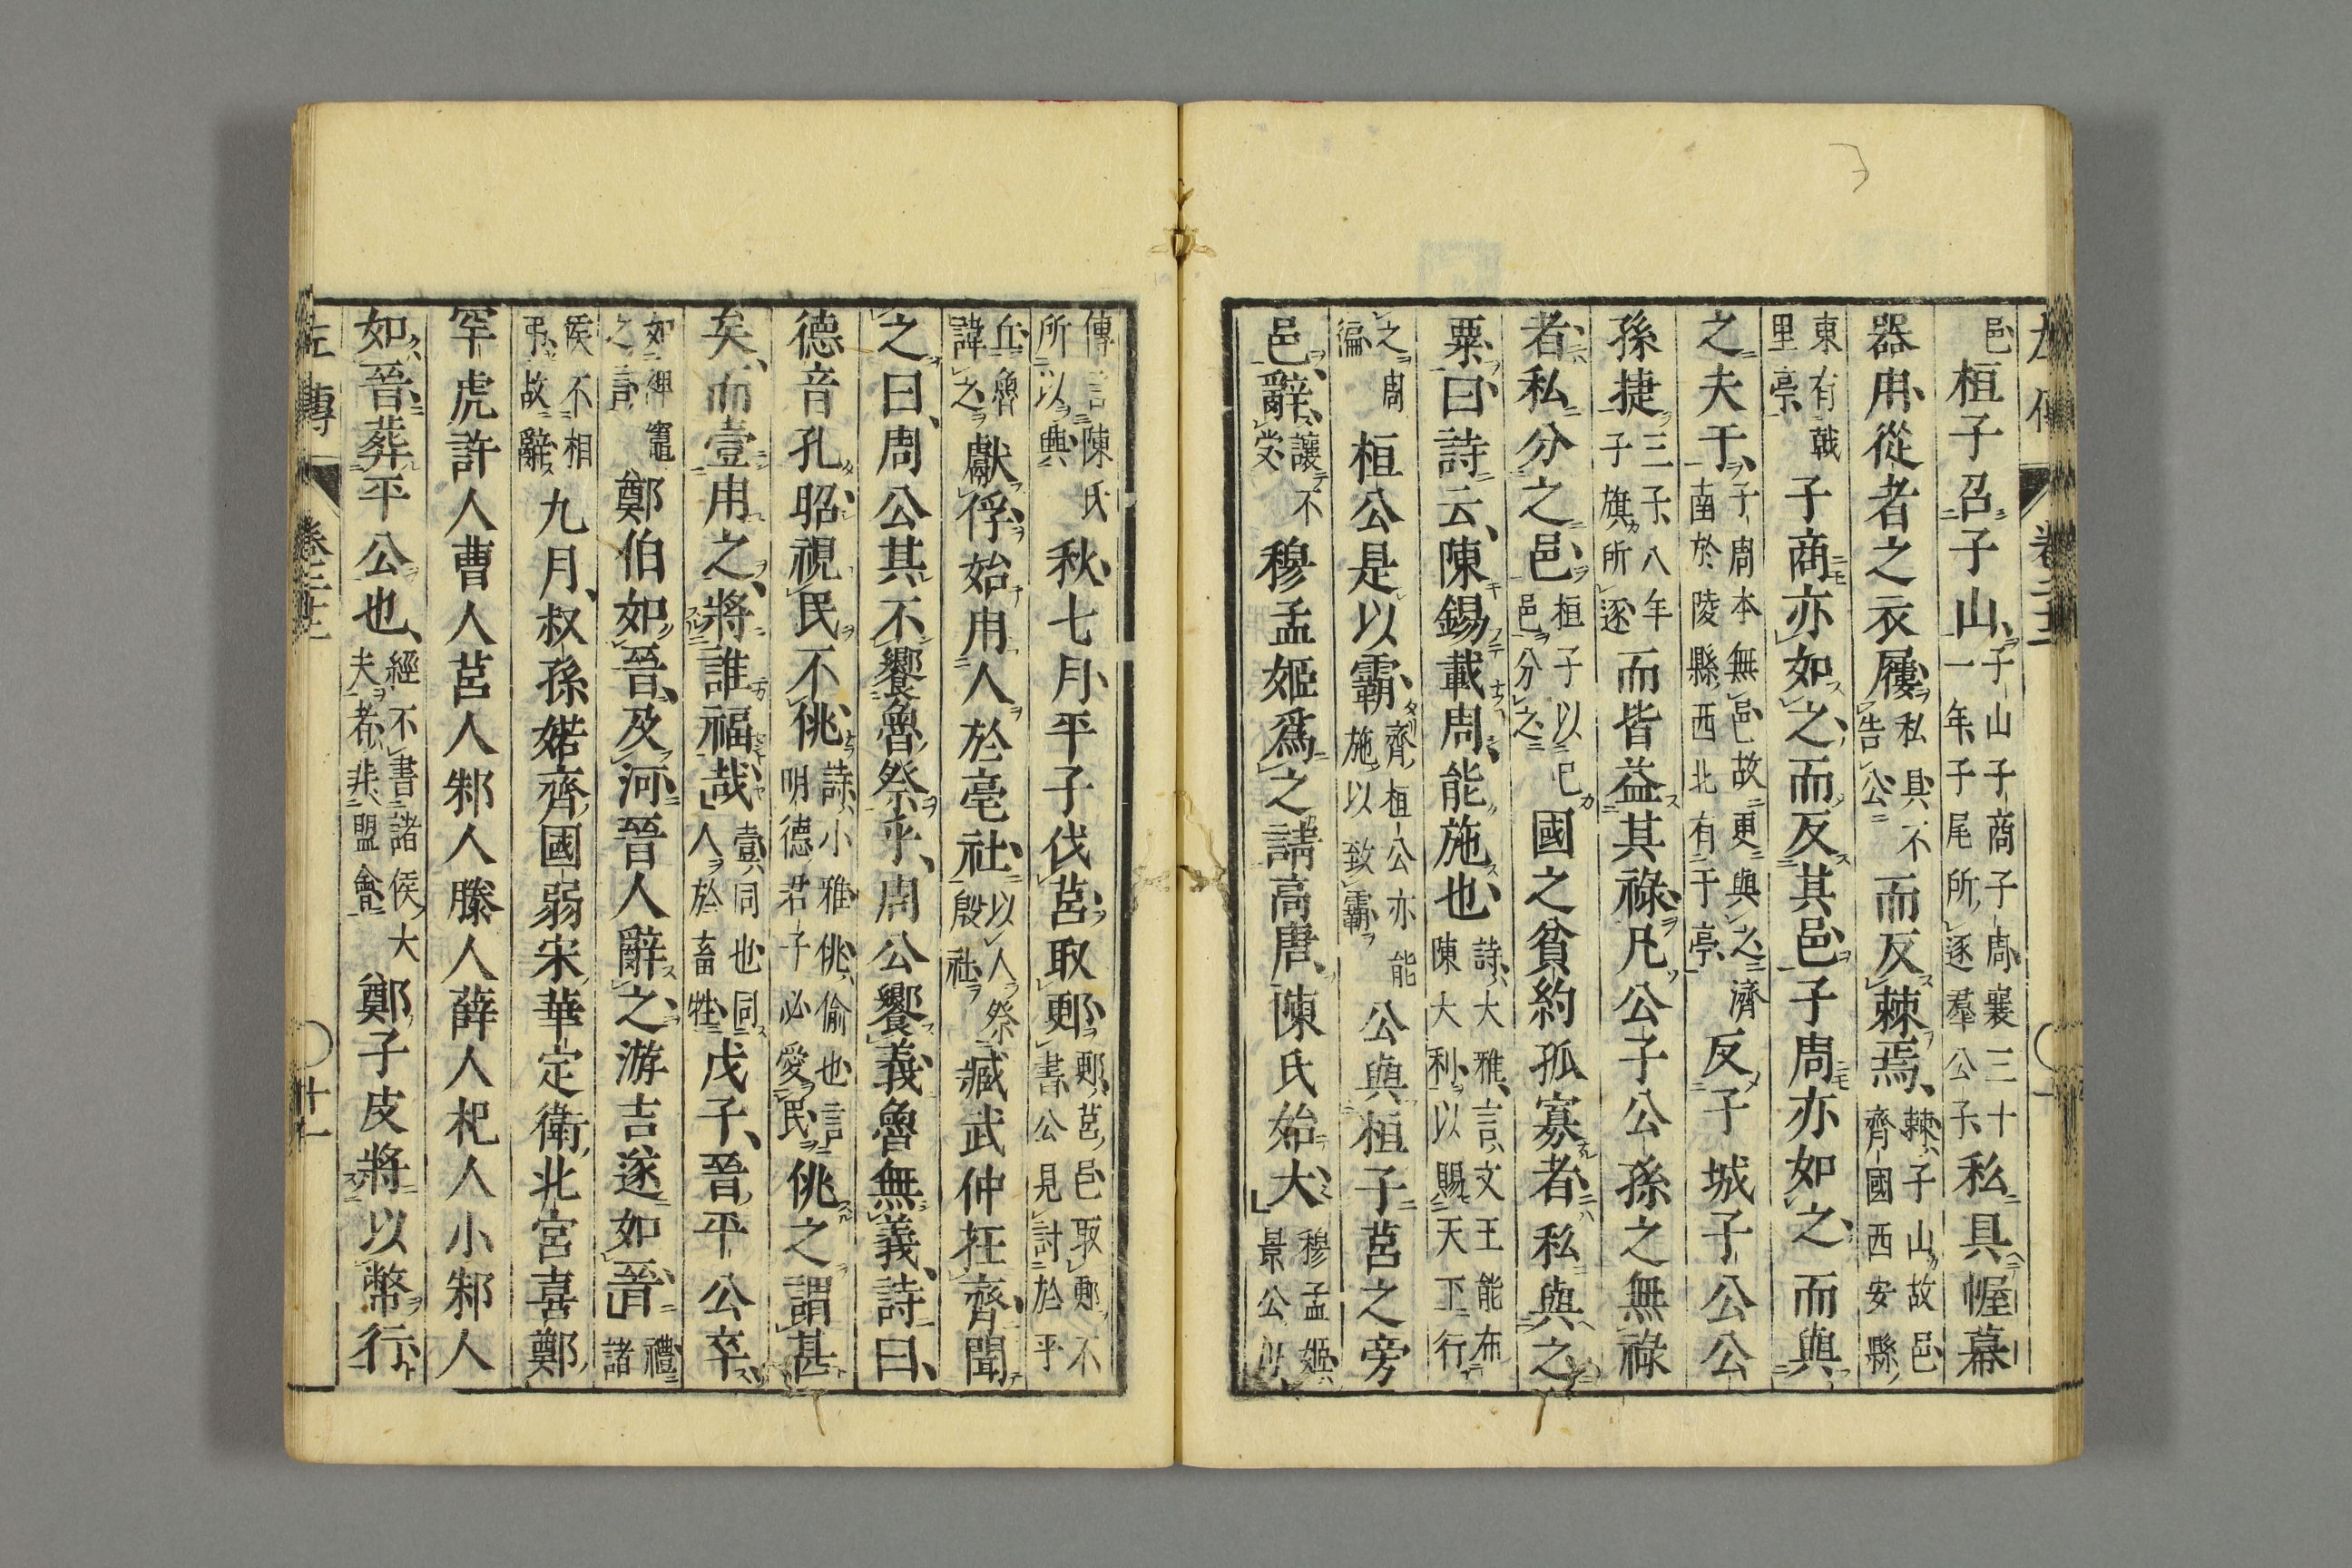 邑桓子召子山子山子商子周襄三十一年子尾所逐羣公子私具幄幕
器用從者之衣屨私具不告公而反棘焉棘子山故邑齊國西安縣
東有戟里亭子商亦如之而反其邑子周亦如之而與
之夫于子周本無邑故更與之濟南於陵縣西北有于亭反子城子公公
孫捷三子八年子旗所逐而皆益其祿凡公子公孫之無祿
者私分之邑桓子以己邑分之國之貧約孤寡者私與之
粟曰詩云陳錫載周能施也詩大雅言文王能布陳大利以賜天下行
之周徧桓公是以霸齊桓公亦能施以致霸公與桓子莒之旁
邑辭讓不受穆孟姬爲之請高唐陳氏始大穆孟姬景公
傳言陳氏所以興秋七月平子伐莒取郠郠莒邑取郠不書公見討於平
丘魯諱之獻俘始用人於亳社以人祭殷社臧武仲在齊聞
之曰周公其不饗魯祭乎周公饗義魯無義詩曰
德音孔昭視民不佻詩小雅佻偷也言明德君子必愛民佻之謂甚
矣而壹用之將誰福哉壹同也同人於畜牲戊子晉平公卒
如裨竈之言鄭伯如晉及河晉人辭之游吉遂如晉禮諸
侯不相弔故辭九月叔孫婼齊國弱宋華定衛北宮喜鄭
罕虎許人曹人莒人邾人滕人薛人杞人小邾人
如晉葬平公也經不書諸侯大夫者非盟會鄭子皮將以幣行
左傳 十一